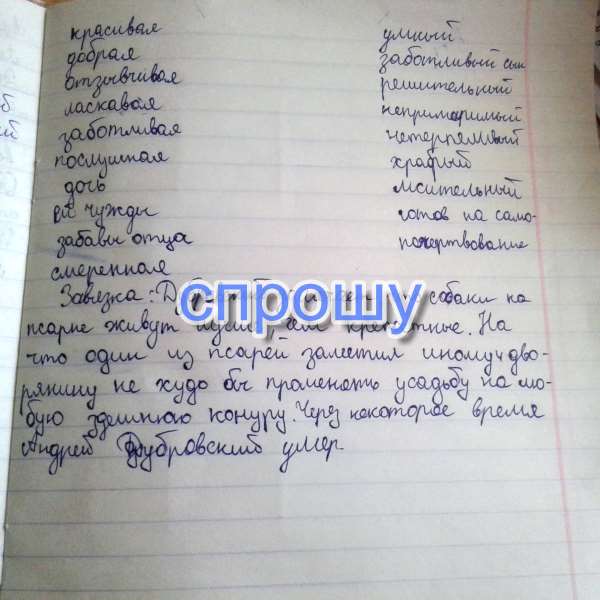 красивая
добрая
отзывчивая
ласкавая
заботливая
послушная
дочь
ей чужды
забавы отца
смеренная
умный
заботливый сын
решительный
непримиримый
нетерпеливый
храбрый
мстительный
готов на само-
пожертвование
Завязка: собаки на
псарне живут крепостные. На
что один из псарей заметил иному дво-
рянину не худо бы променять усадьбу на лю-
бую здешнюю конуру. Через некоторое время
Андрей Дубровский умер.
спрошу